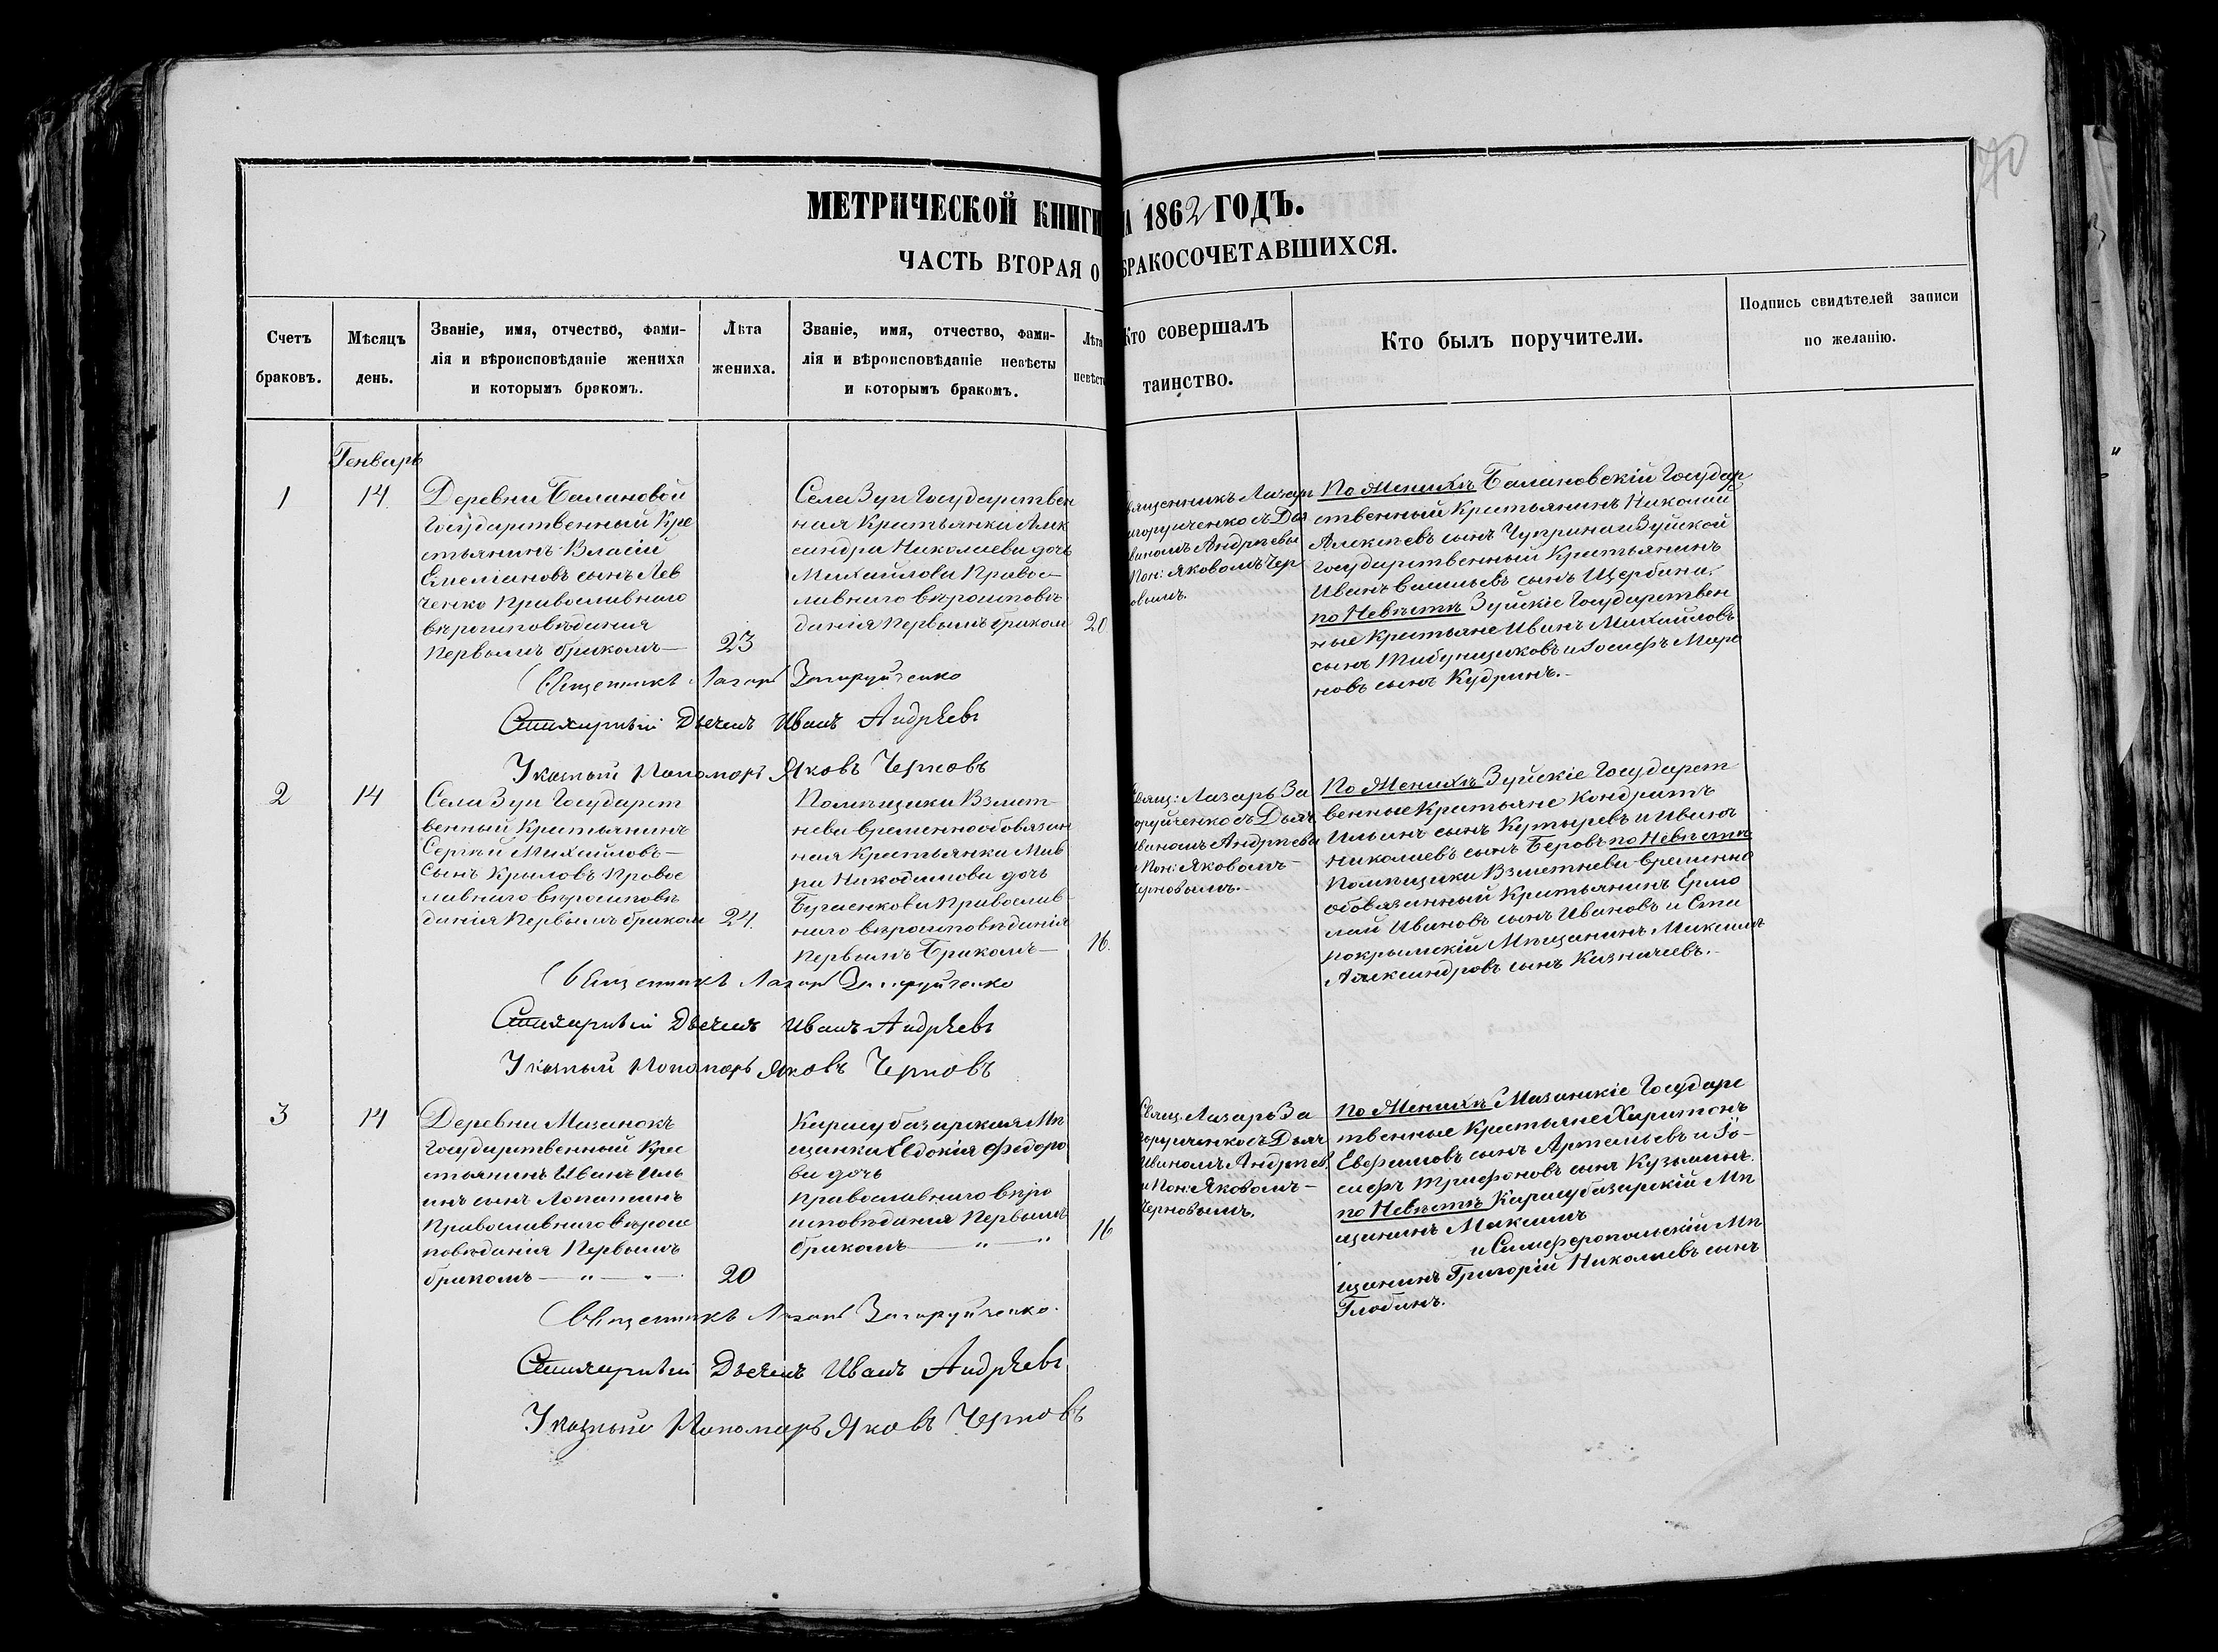 70
МЕТРИЧЕСКОЙ КНИГИ
А 1862 ГОДЪ.
ЧАСТЬ ВТОРАЯ О
БРАКОСОЧЕТАВШИХСЯ.
Счетъ
браковъ.
Мѣсяцъ
день.
Званіе, имя, отчество, фами-
лія и вѣроисповѣданіе жениха
и которымъ бракомъ.
Лѣта
жениха.
Званіе, имя, отчество, фами-
лія и вѣроисповѣданіе невѣсты
и которымъ бракомъ.
Лѣта
невѣсты
Кто совершалъ
таинство.
Кто былъ поручители.
Подпись свидѣтелей записи
по желанію.
Генварь
1
14
Деревни Балановой
Государственный Кре
стьянинъ Власій
Емеліановъ сынъ Лев
ченко Православнаго
вѣроисповѣданія
Первымъ бракомъ—
23
Села Зуи Государствен
ная Крестьянка Алек
сандра Николаева дочь
Михайлова Правос—
лавнаго вѣроисповѣ
данія Первымъ браком
20
вященникъ Лазарь
агоруйченко съ Дья
Иваномъ Андреевы
Пон: Яковомъ Чер
овымъ.
По Женихѣ Балановскій Государ
ственный Крестьянинъ Николай
Алексѣевъ сынъ Чуприна и Зуйской
Государственный Крестьянинъ
Иванъ Васильевъ сынъ Щербина.
по Невѣстѣ Зуйскіе Государствен
ные Крестьяне Иванъ Михайловъ
сынъ Табунщиковъ и Іосифъ Миро
новъ сынъ Кудринъ.—
Священникъ Лазарь Загоруйченко
Стихарный Дьячекъ Иванъ Андрѣевъ
Указный Пономарь Яковъ Черновъ
2
14
Села Зуи Государст
венный Крестьянинъ
Сергѣй Михайловъ—
Сынъ Крыловъ Правос
лавнаго вѣроисповѣ
данія Первымъ браком
24.
Помѣщика Взмет—
нева временнообовязан
ная Крестьянка Мав
ра Никодимова дочь
Бугаенкова Православ
наго вѣроисповѣданія
Первымъ Бракомъ—
16.
Свящ: Лазарь За
горуйченко съ Дьяч
Иваномъ Андреевы
и Пон: Яковомъ—
Черновымъ.—
По Женихѣ Зуйскіе Государст
венные Крестьяне Кондратъ
Ильинъ сынъ Кутыревъ и Иванъ
Николаевъ сынъ Беровъ по Невѣстѣ
Помѣщика Взметнева временно
обовязанный Крестьянинъ Ермо
лай Ивановъ сынъ Ивановъ и Ста
рокрымскій Мѣщанинъ Максимъ
Александровъ сынъ Казначеевъ.—
Священникъ Лазарь Загоруйченко
Стихарный Дьячекъ Иванъ Андрѣевъ
Указный Пономарь Яковъ Черновъ
3
14
Деревни Мазанокъ
Государственный Крес
тьянинъ Иванъ Иль
инъ сынъ Лопатинъ
Православнаго вѣроис
повѣданія Первымъ
бракомъ — „ — „ —
20
Карасубазарская Мѣ
щанка Евдокія Федоро
ва дочь
Православнаго вѣро
исповѣданія Первымъ
бракомъ — „ — „
16
Свящ. Лазарь За
горуйченко съ Дьяч
Иваномъ Андреев
и Пон: Яковомъ—
Черновымъ.
По Женихѣ Мазанскіе Государс
твенные Крестьяне Харитонъ
Евфимовъ сынъ Артемьевъ и Іо—
сифъ Трифоновъ сынъ Кузьминъ.
по Невѣстѣ Карасубазарскій Мѣ
щанинъ Максимъ
и Симферопольскій Мѣ
щанинъ Григорій Николаевъ сынъ
Глобинъ.
Священникъ Лазарь Загоруйченко.
Стихарный Дьячекъ Иванъ Андрѣевъ
Указный Пономарь Яковъ Черновъ